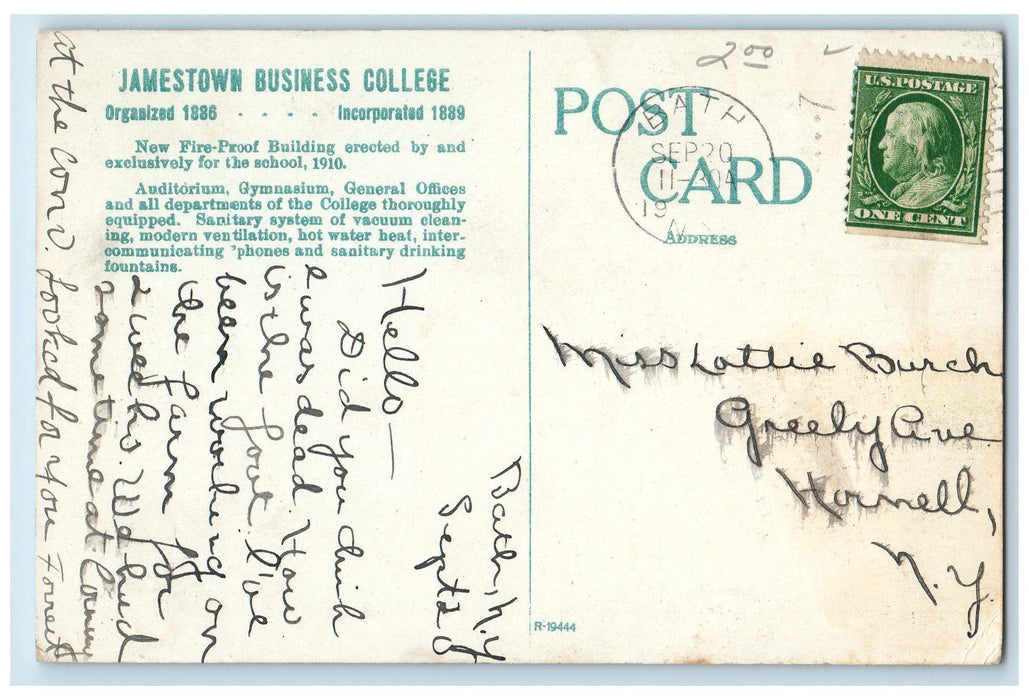 JAMESTOWN BUSINESS COLLEGE
Organized 1886 - - - - Incorporated 1889
New Fire-Proof Building erected by and
exclusively for the school, 1910.
Auditorium, Gymnasium, General Offices
and all departments of the College thoroughly
equipped. Sanitary system of vacuum clean-
ing, modern ventilation, hot water heat, inter-
communicating 'phones and sanitary drinking
fountains.
Bath, N.Y
Sept 20
Hello —
Did you think
I was dead. How
is the foot. I've
been working on
the farm for
2 weeks. We had
some time at Corning
at the Conv. looked for you Forrest
2 00
POST
CARD
ADDRESS
BATH
SEP 20
11-30A
19
N.Y.
U.S. POSTAGE
ONE CENT
Miss Lottie Burch
Greely Ave
Hornell,
N.Y
R-19444